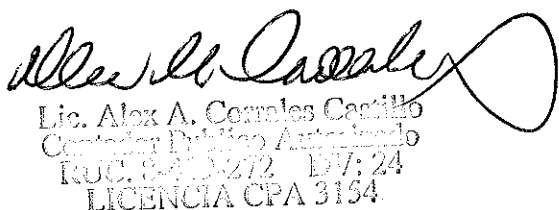 Lic. Alex A. Corrales Castillo
Contador Publico Autorizado
RUC. 272 DV: 24
LICENCIA CPA 3154